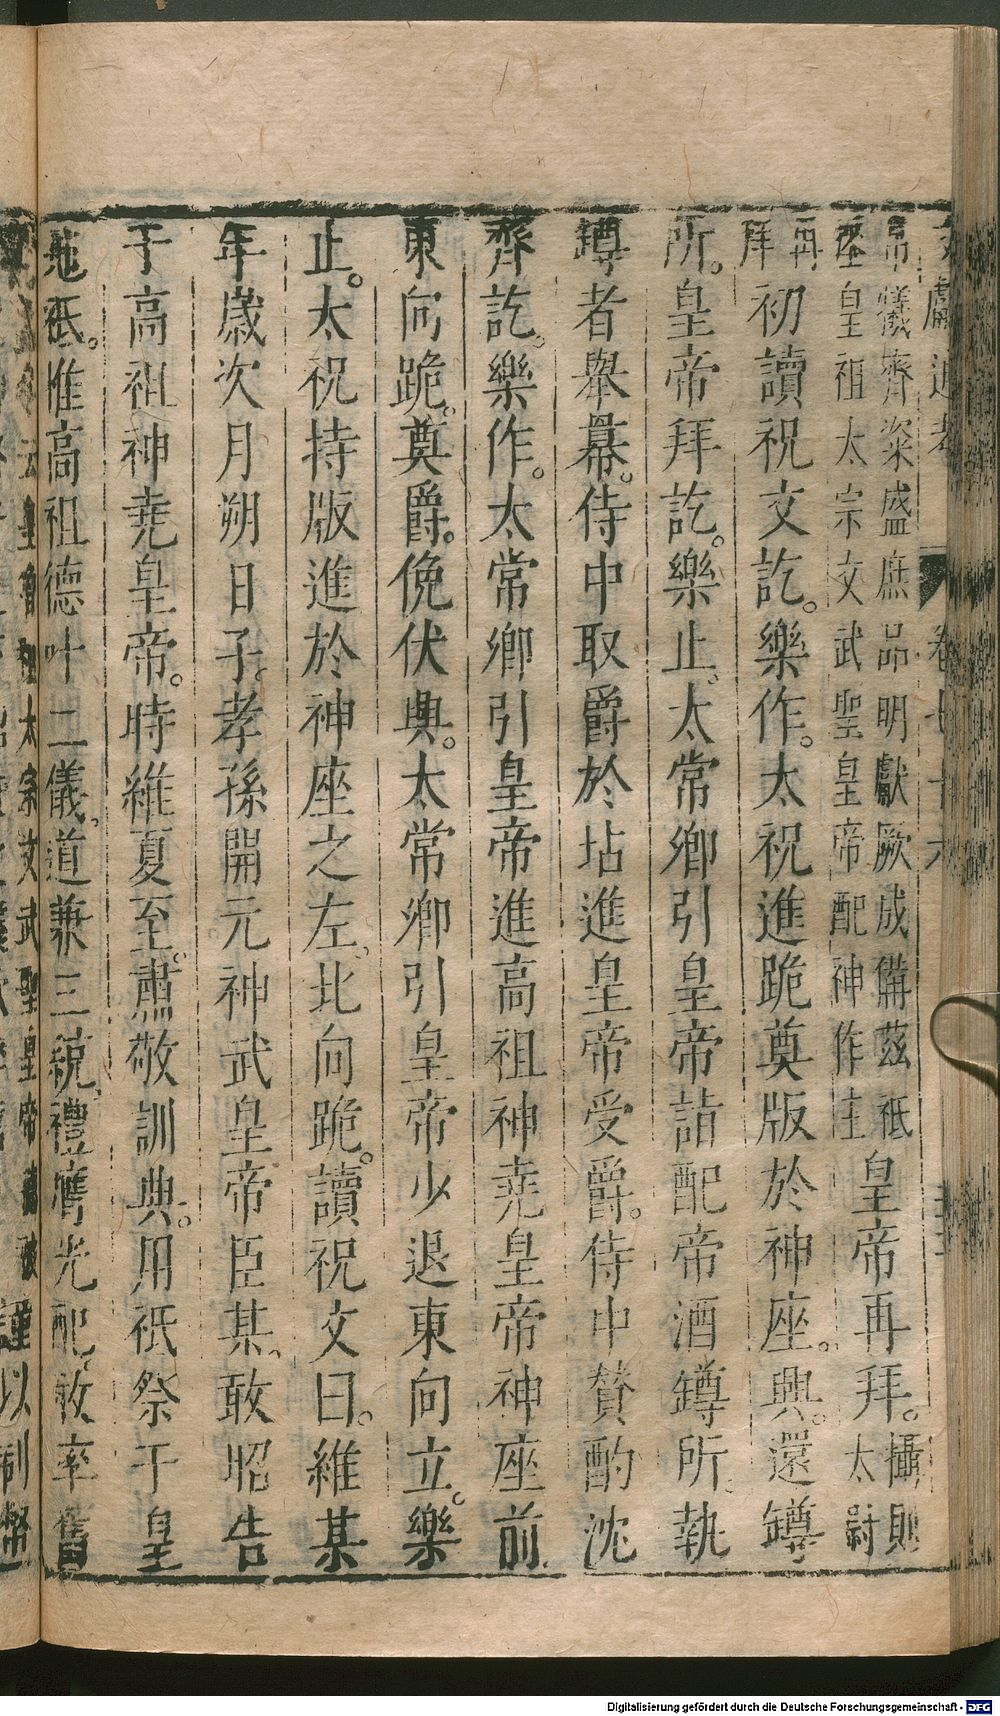 帛儀齊粢盛庶品明獻厥成備茲祗
座皇祖太宗文武聖皇帝配神作主
皇帝再拜。攝則太尉
再拜初讀祝文訖。樂作。太祝進跪奠版於神座。興。還罇
所。皇帝拜訖。樂止、太常卿引皇帝詣配帝酒罇所、執
罇者舉冪。侍中取爵於坫進皇帝受爵。侍中賛酌沈
齊訖。樂作。太常卿引皇帝進高祖神堯皇帝神座前
東向跪。奠爵。俛伏興。太常卿引皇帝少退東向立。樂
止。太祝持版進於神座之左、北向跪。讀祝文曰。維某
年歲次月朔日子。孝孫開元神武皇帝臣某、敢昭告
于高祖神堯皇帝。時維夏至。肅敬訓典。用祇祭于皇
地祇。惟高祖德叶二儀、道兼三統、禮膺光配、敢率舊
太宗文武聖皇帝
謹以制幣
Digitalisierung gefördert durch die Deutsche Forschungsgemeinschaft - DFG